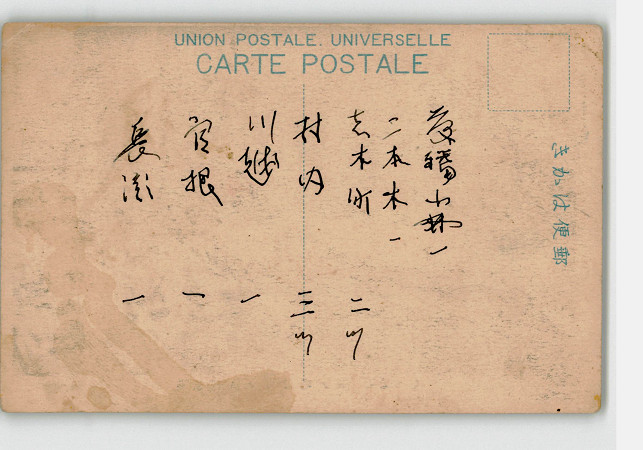 UNION POSTALE. UNIVERSELLE
CARTE POSTALE
きかは便郵
小林一
二本木一
志木町 二ツ
村内 三ツ
川越 一
官根 一
長 一